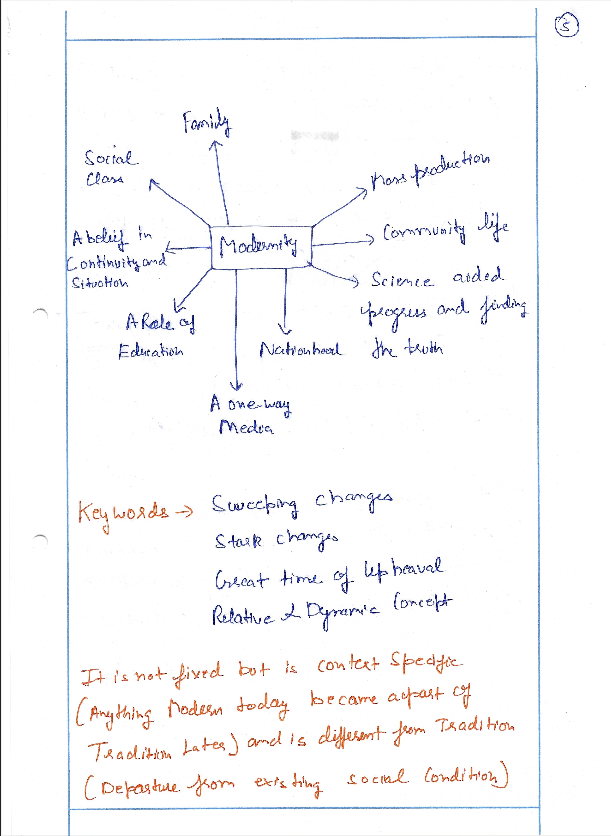 5
Family
Social
Class
Mass production
A belief in
Continuity and
Situation
Modernity
Community life
Science aided
progress and finding
the truth
A Role of
Education
Nationhood
A one-way
Media
Keywords →
Sweeping changes
Stark changes
Great time of Upheaval
Relative & Dynamic Concept
It is not fixed but is context Specific
(Anything Modern today became apart of
Tradition Later) and is different from Tradition
(Departure from existing social Condition)